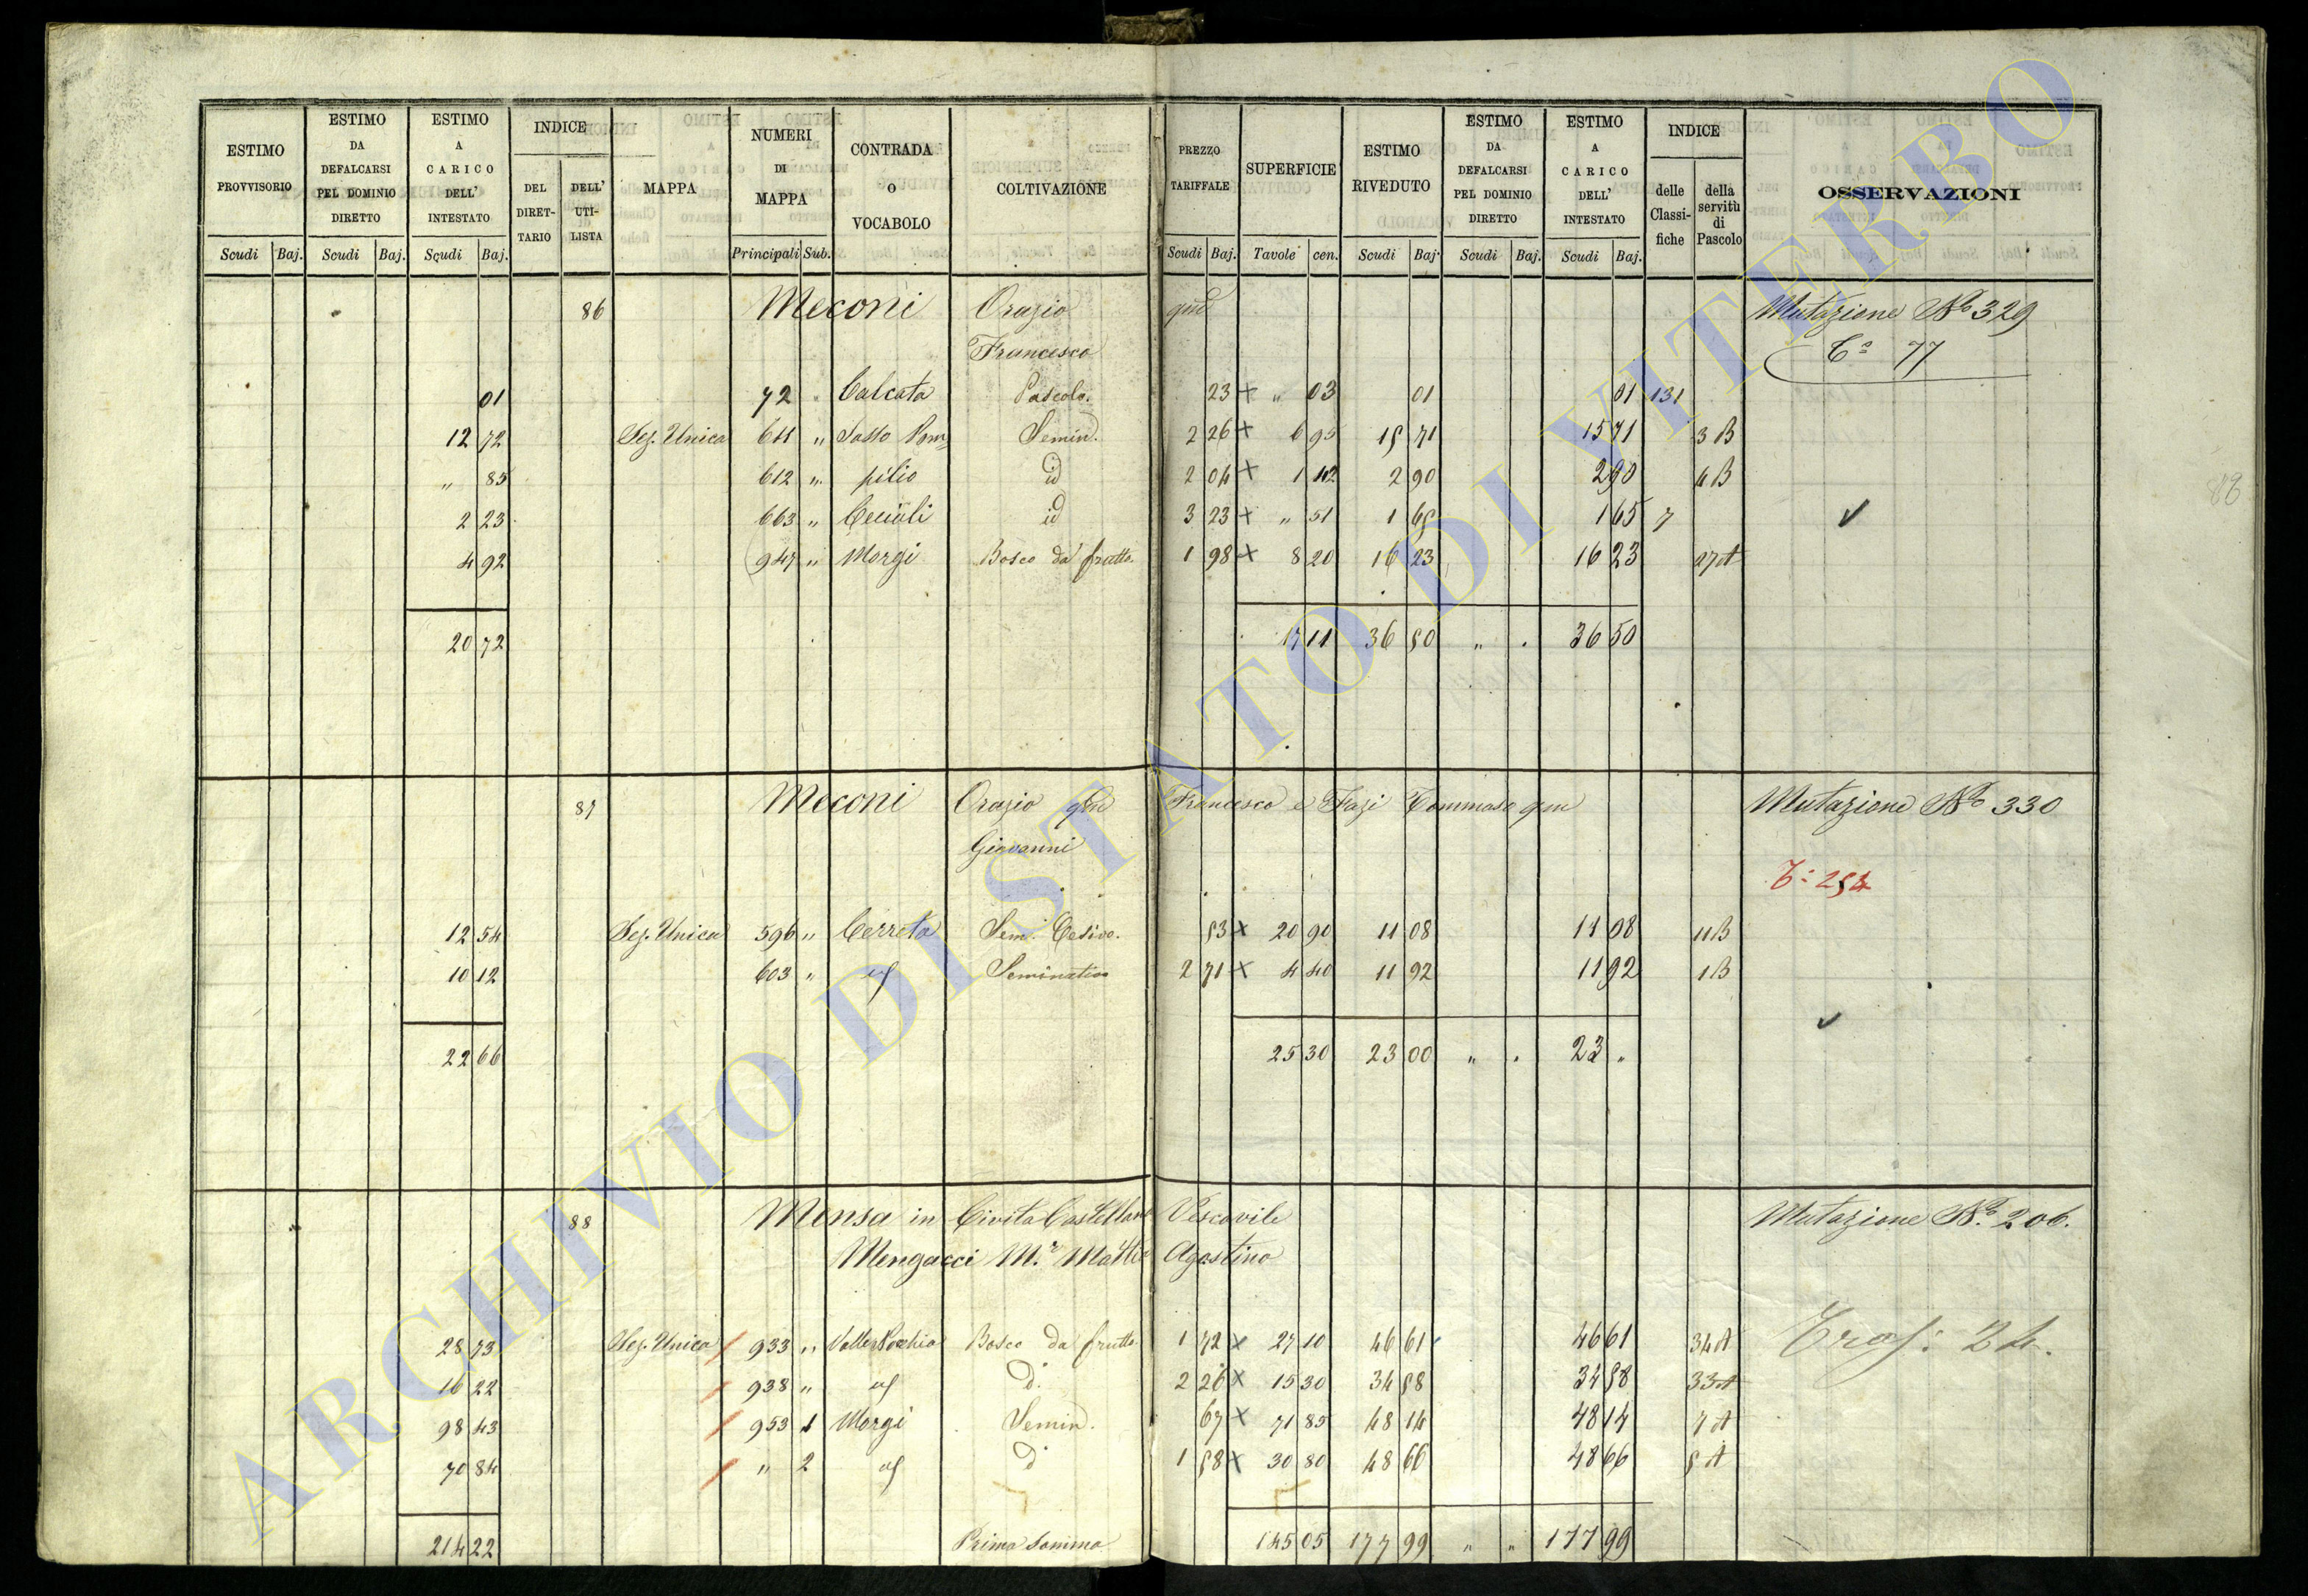 ESTIMO PROVVISORIO Scudi Baj. ESTIMO DA DEFALCARSI PEL DOMINIO DIRETTO Scudi Baj. ESTIMO A CARICO DELL' INTESTATO Scudi Baj. INDICE DEL DIRET-TARIO DELL' UTI-LISTA MAPPA NUMERI DI MAPPA Principali Sub. CONTRADA O VOCABOLO COLTIVAZIONE PREZZO TARIFFALE Scudi Baj. SUPERFICIE Tavole cen. ESTIMO RIVEDUTO Scudi Baj. ESTIMO DA DEFALCARSI PEL DOMINIO DIRETTO Scudi Baj. ESTIMO A CARICO DELL' INTESTATO Scudi Baj. INDICE delle Classi-fiche della servitù di Pascolo OSSERVAZIONI
86 Meconi Orazio qm Mutazione No 329
Francesco Co 77
01 72 Calcata Pascolo. 23 + " 03 01 01 131
12 72 Sez. Unica 611 " Sasso Pom Semin. 2 26 + 6 95 15 71 15 71 3 B
" 85 612 " pilio id 2 04 + 1 42 2 90 2 90 4 B
2 23 663 " Cecioli id 3 23 + " 51 1 65 1 65 7
4 92 947 " Morgi Bosco da frutto 1 98 + 8 20 16 23 16 23 27 A
20 72 17 11 36 50 " . 36 50
87 Meconi Orazio qm Francesco e Fazi Tommaso qm Mutazione No 330
Giovanni
12 54 Sez. Unica 596 " Cerreta Sem. Cesivo. 53 x 20 90 11 08 11 08 11 B
10 12 603 " Seminativo 2 71 x 4 40 11 92 11 92 1 B
22 66 25 30 23 00 " . 23 "
88 Mensa in Civita Castellana Vescovile Mutazione No. 206.
Mengacci M.r Mattia Agostino
28 73 Sez. Unica 933 " Bosco da frutto 1 72 x 27 10 46 61 46 61 34 A Tras: 24.
16 22 938 " d. 2 26 x 15 30 34 58 34 58 33 A
98 43 953 1 Morgi Semin. 67 x 71 85 48 14 48 14 7 A
70 84 " 2 d 1 58 x 30 80 48 66 48 66 5 A
214 22 Prima Somma 145 05 177 99 " " 177 99
88
ARCHIVIO DI STATO DI VITERBO